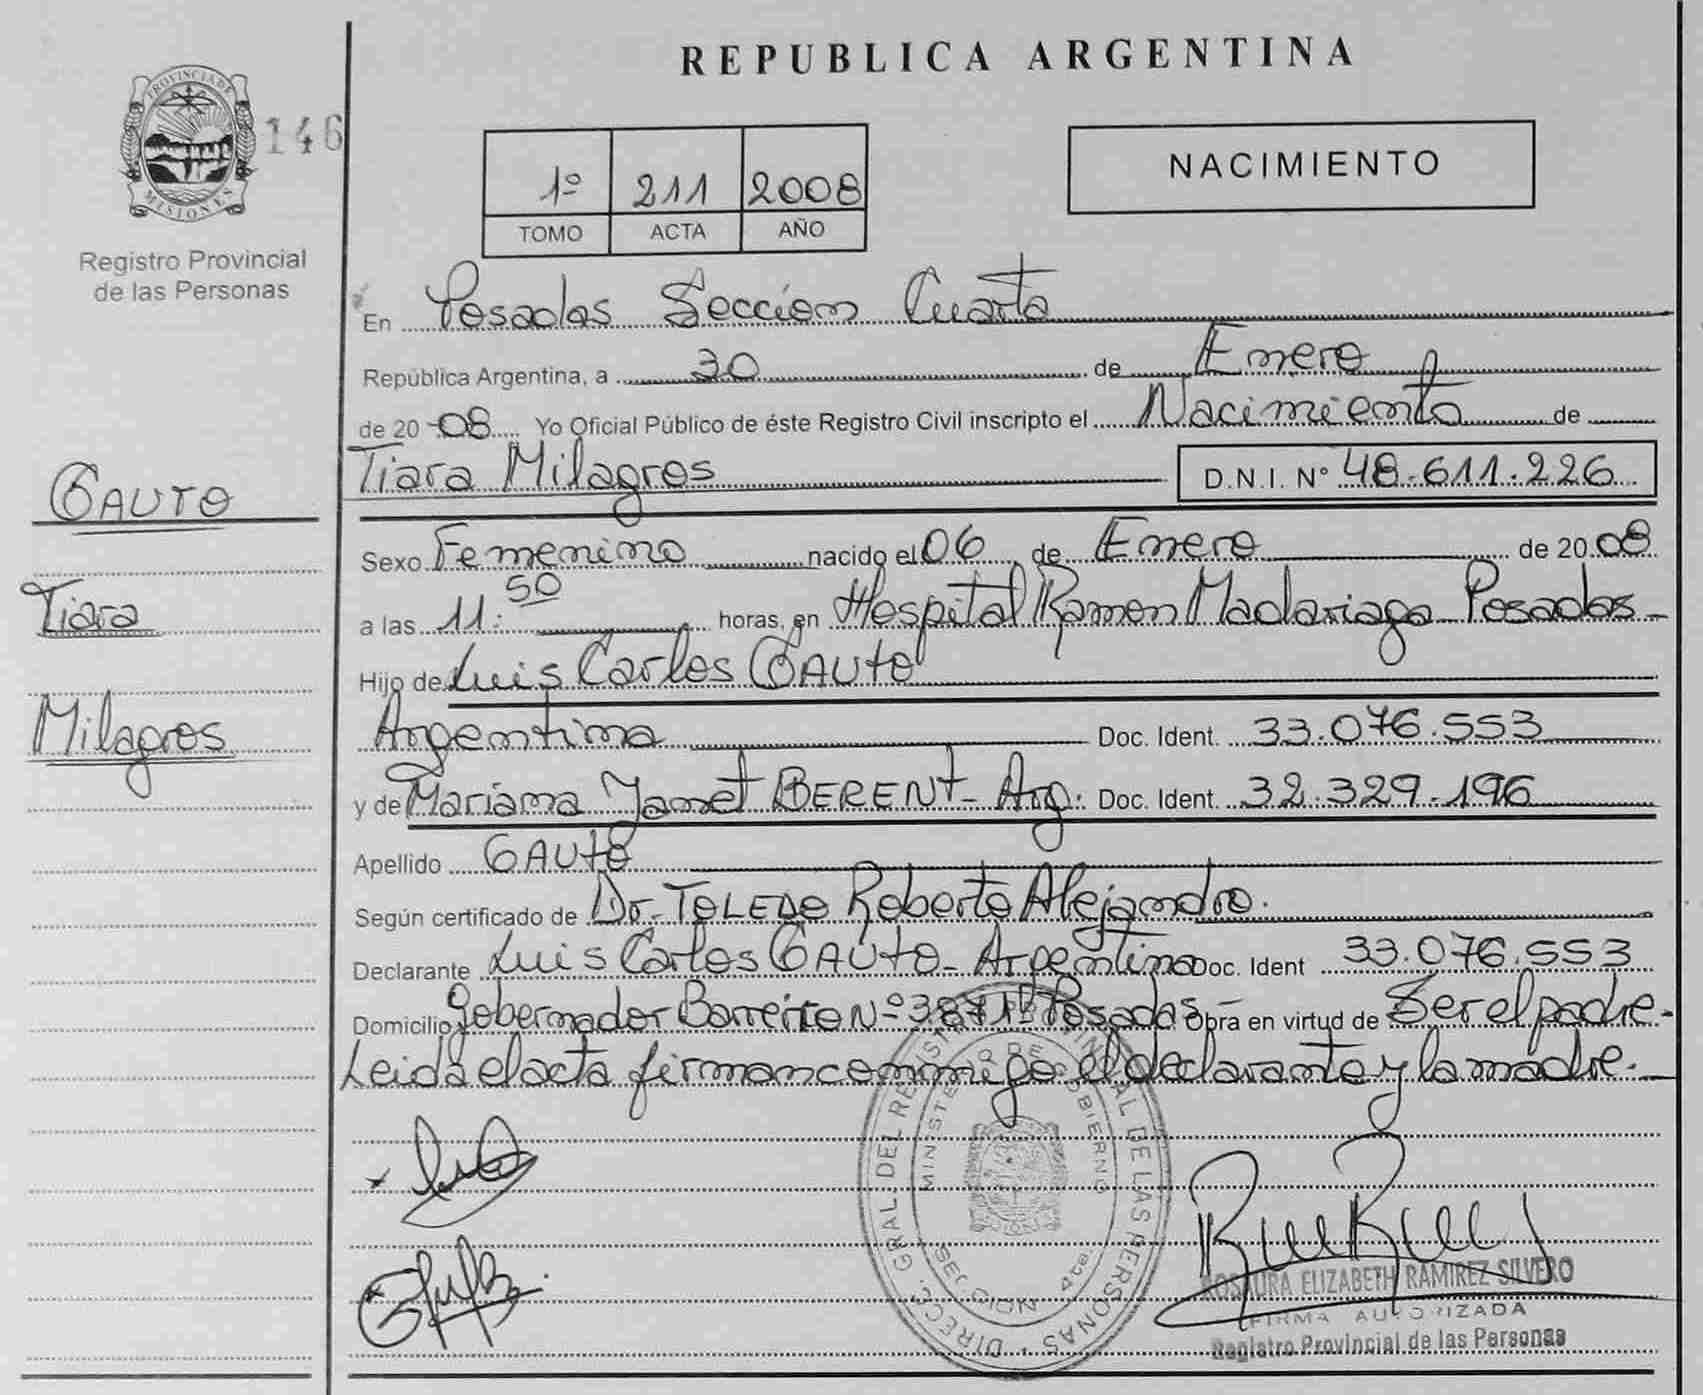 REPUBLICA ARGENTINA
PROVINCIA DE
MISIONES
146
Registro Provincial
de las Personas
1º 211 2008
TOMO ACTA AÑO
NACIMIENTO
En Posadas Sección Cuarta
República Argentina, a 30 de Enero
de 20 08 Yo Oficial Público de éste Registro Civil inscripto el Nacimiento de
Tiara Milagros D.N.I. Nº 48.611.226
GAUTO
Sexo Femenino nacido el 06 de Enero de 20 08
Tiara
a las 11:50 horas, en Hospital Ramon Madariaga Posadas
Hijo de Luis Carlos GAUTO
Milagros
Argentina Doc. Ident. 33.076.553
y de Mariana Yanet BERENT - Arg. Doc. Ident. 32.329.196
Apellido GAUTO
Según certificado de Dr. TOLEDO Roberto Alejandro.
Declarante Luis Carlos GAUTO - Argentino Doc. Ident 33.076.553
Domicilio Gobernador Barreiro Nº 3871 Posadas Obra en virtud de Ser el padre -
Leida el acta firman conmigo el declarante y la madre. -
DIRECC. GRAL. DEL REGISTRO PROVINCIAL DE LAS PERSONAS
MINISTERIO DE GOBIERNO
SECCION 4ta
ROSAURA ELIZABETH RAMIREZ SILVERO
FIRMA AUTORIZADA
Registro Provincial de las Personas